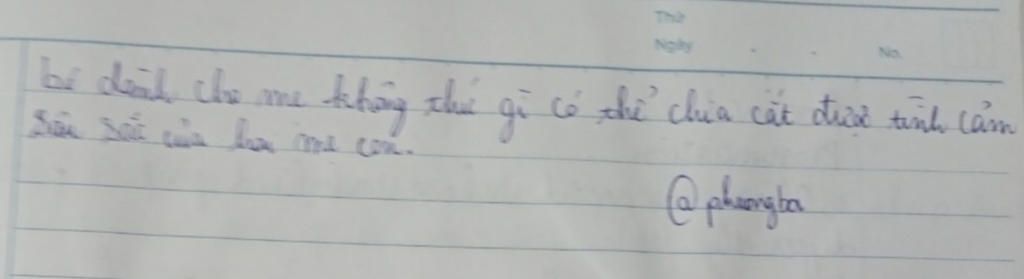 Thứ
Ngày . . No.
bé dành cho mẹ không thứ gì có thể chia cắt được tình cảm
sâu sắc của hai mẹ con.
@phuongba